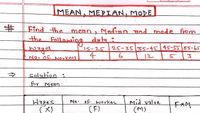 MEAN, MEDIAN, MODE
# Find the mean, Median and mode from
the following data :
Wages 15-25 25-35 35-45 45-55 55-65
No. of workers 4 6 12 5 3
⇒ Solution :
For Mean
Wages No. of worker Mid value F×M
(X) (F) (M)